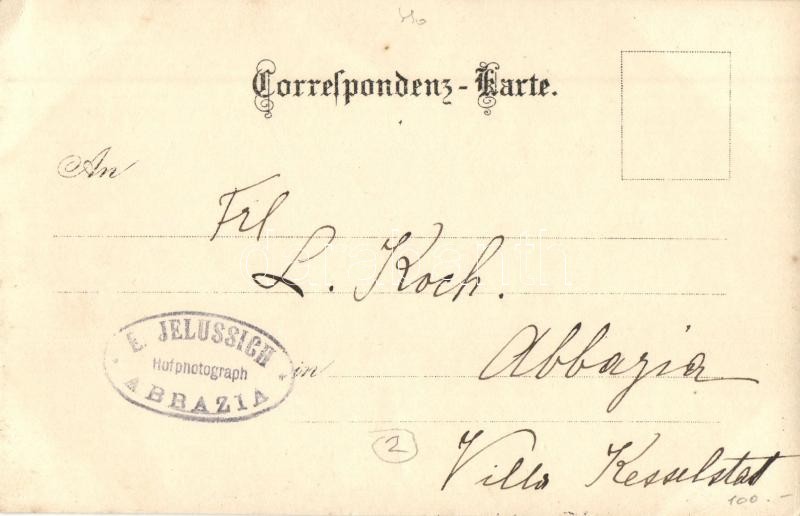 Correſpondenz-Karte.
An
Frl
L. Koch.
E. JELUSSICH
Hofphotograph
ABBAZIA
in
Abbazia
2
Villa Kesselstat
100.-